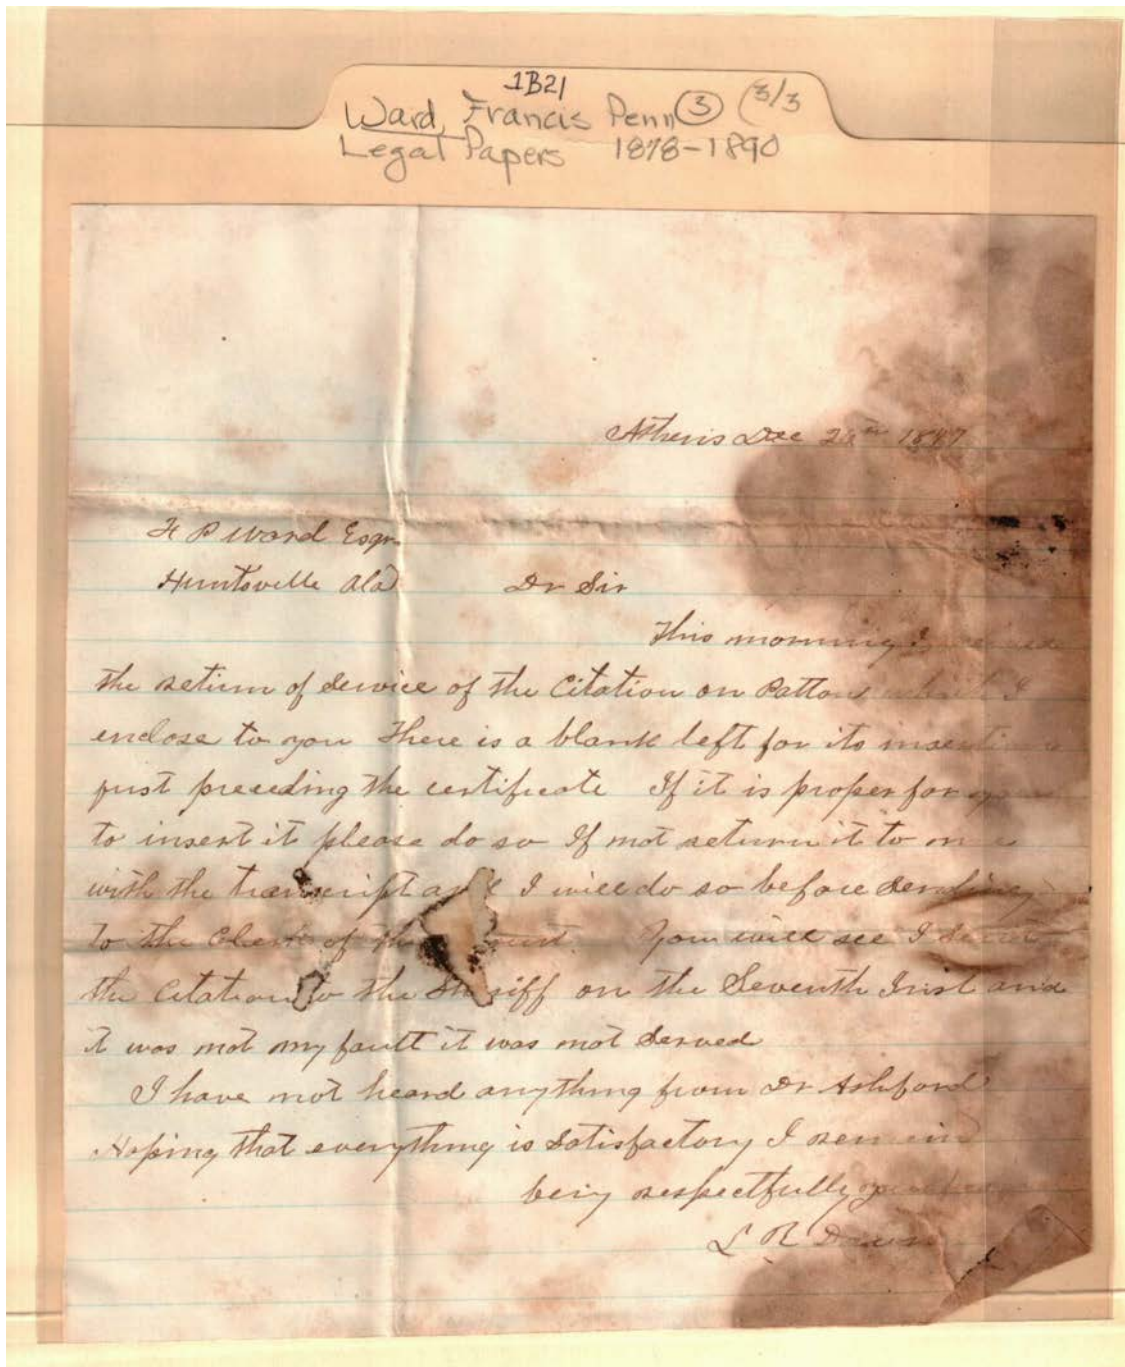 1B21
Ward, Francis Penn ③ (3/3
Legal Papers 1878-1890
Athens Dec 1887
F P Ward Esqr
Huntsville Ala Dr Sir
This morning I
the return of service of the Citation on Patton which I
enclose to you There is a blank left for its insertion
just preceding the certificate If it is proper for you
to insert it please do so If not return it to me
with the transcript and I will do so before sending
to the Clerk of the Court. You will see I
the Citation to the Sheriff on the Seventh Inst and
it was not my fault it was not served
I have not heard anything from Dr Ashford
Hoping that everything is satisfactory I remain
very respectfully
L R